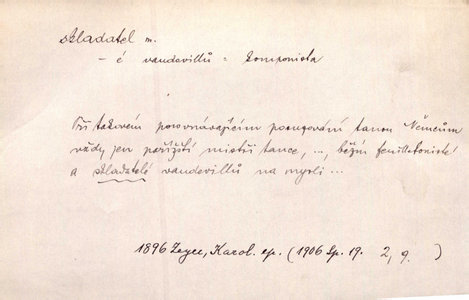 skladatel m.
- é vaudevillů = komponista
Při takovém porovnávajícím pozorování tanou Němcům
vždy jen pařížští mistři tance, ..., běžní feuilletonisté
a skladatelé vaudevillů na mysli ...
1896 Zeyer, Karol. ep. (1906 Sp. 19. 2, 9. )